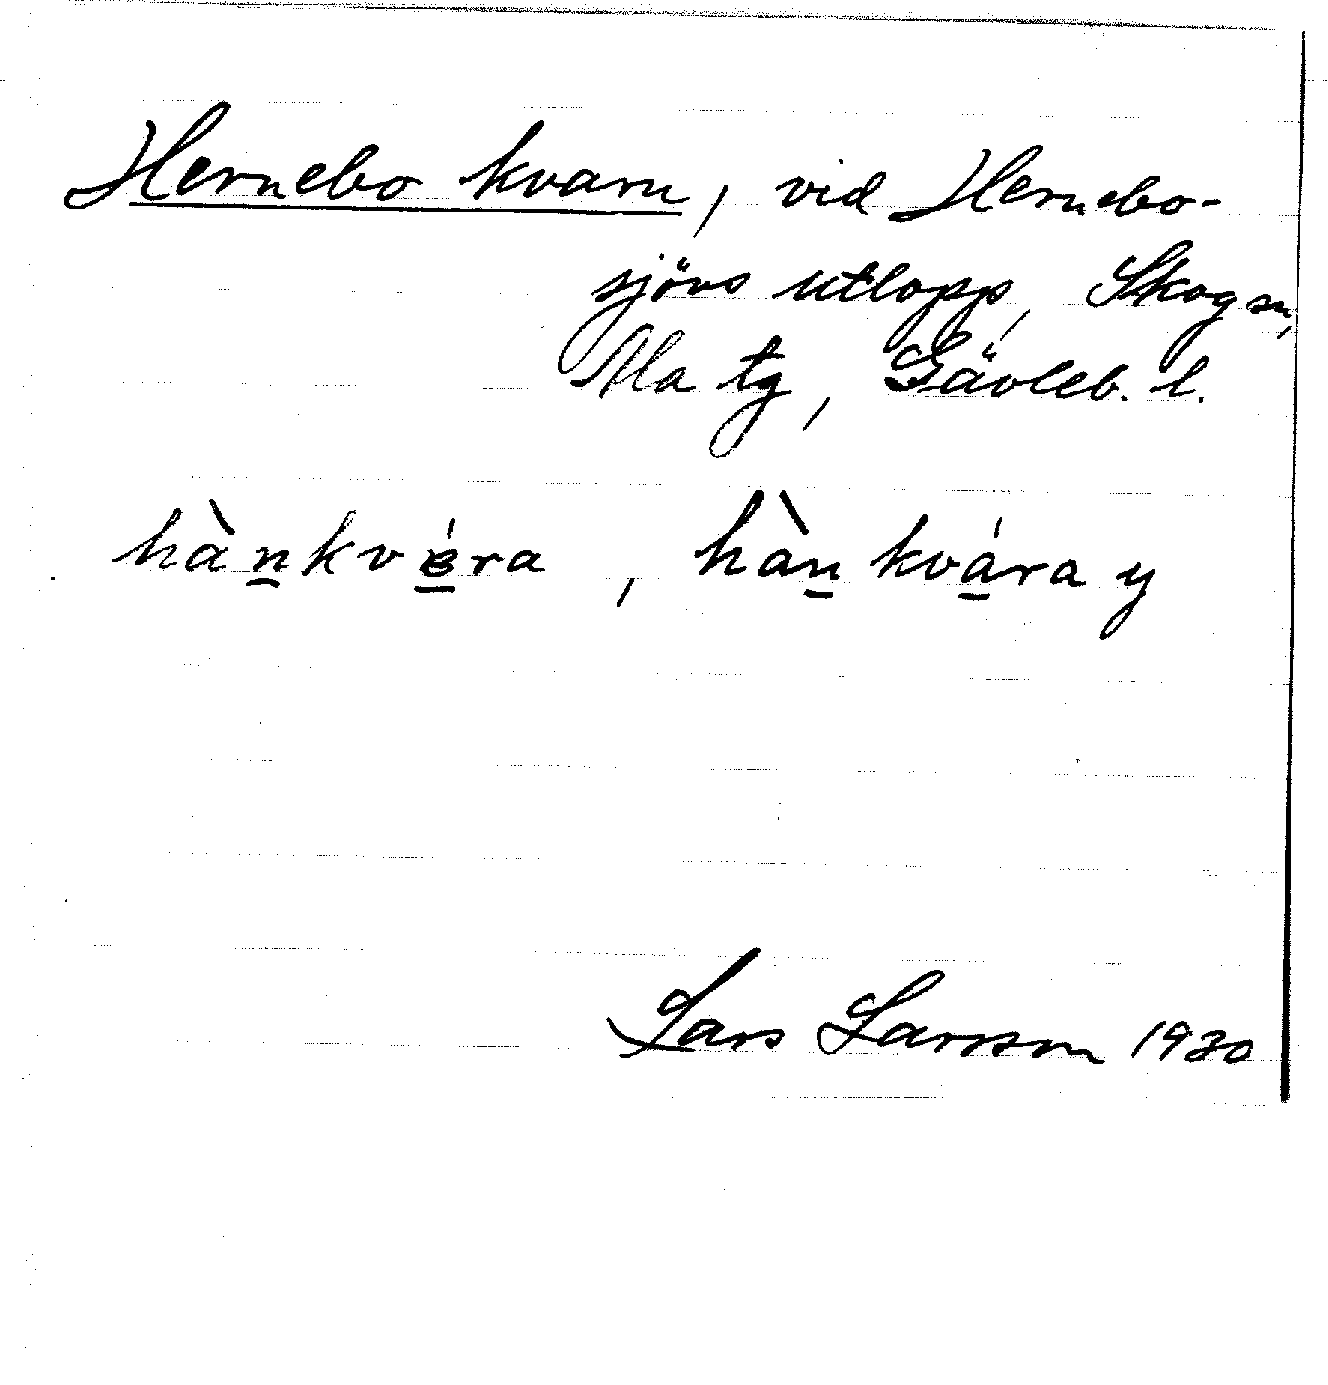 Hernebo kvarn, vid Hernebo-
sjöns utlopp, Skog sn,
Ala tg, Gävleb. l.
hàn̲kvé̲ra, hàn̲kvá̲ra y
Lars Larsson 1930